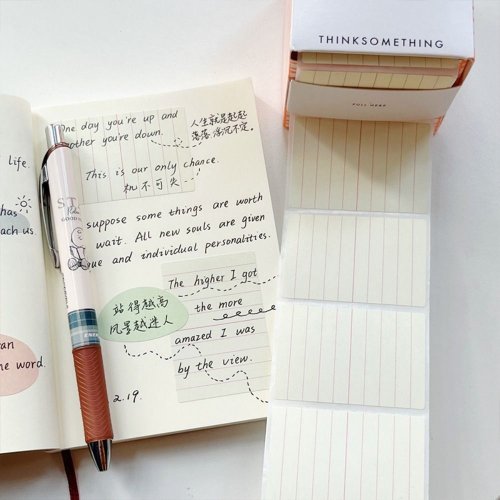 THINKSOMETHING
PULL HERE
life.
has
each us.
an
he word.
One day you're up and
another you're down.
人生就是起起
落落,浮沉不定。
This is our only chance.
机不可失
suppose some things are worth
wait. All new souls are given
and individual personalities.
The higher I got
the more
amazed I was
by the view.
站得越高
风景越迷人
2.19.
ST